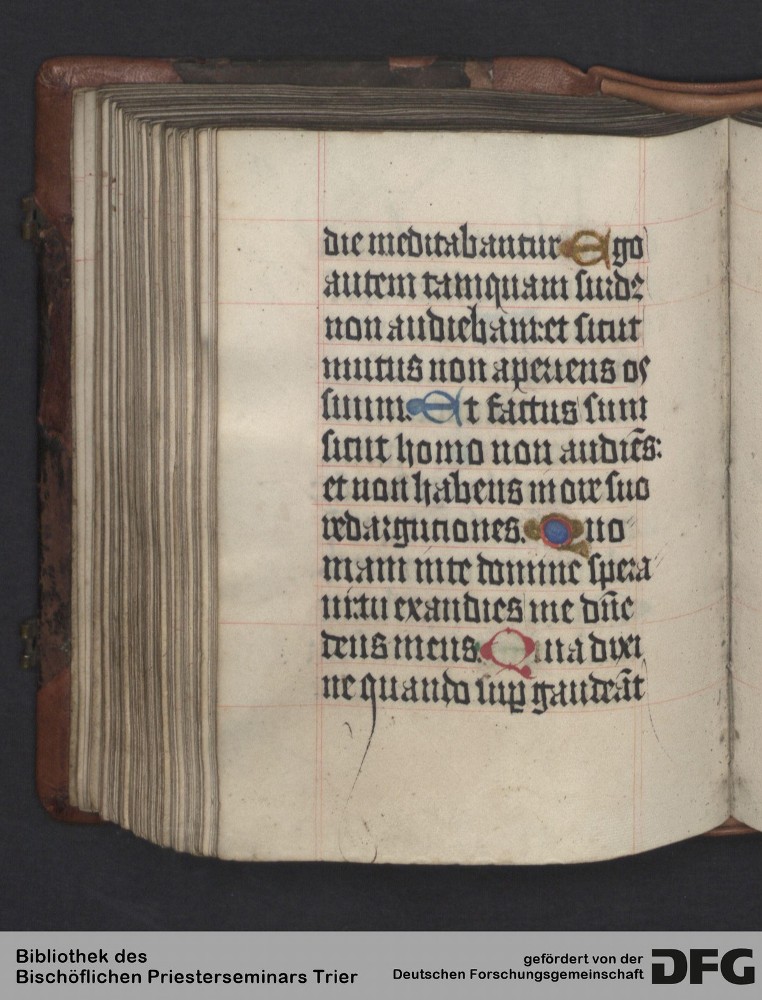 die meditabantur Ego
autem tamquam surdꝰ
non audiebam: et sicut
mutus non aperiens os
suum. Et factus sum
sicut homo non audiēs:
et non habens in ore suo
redarguciones. Quo
niam in te domine spera
ui tu exaudies me dn̄e
deus meus. Quia dixi
ne quando suꝑ gaudeāt
Bibliothek des
Bischöflichen Priesterseminars Trier
gefördert von der
Deutschen Forschungsgemeinschaft
DFG